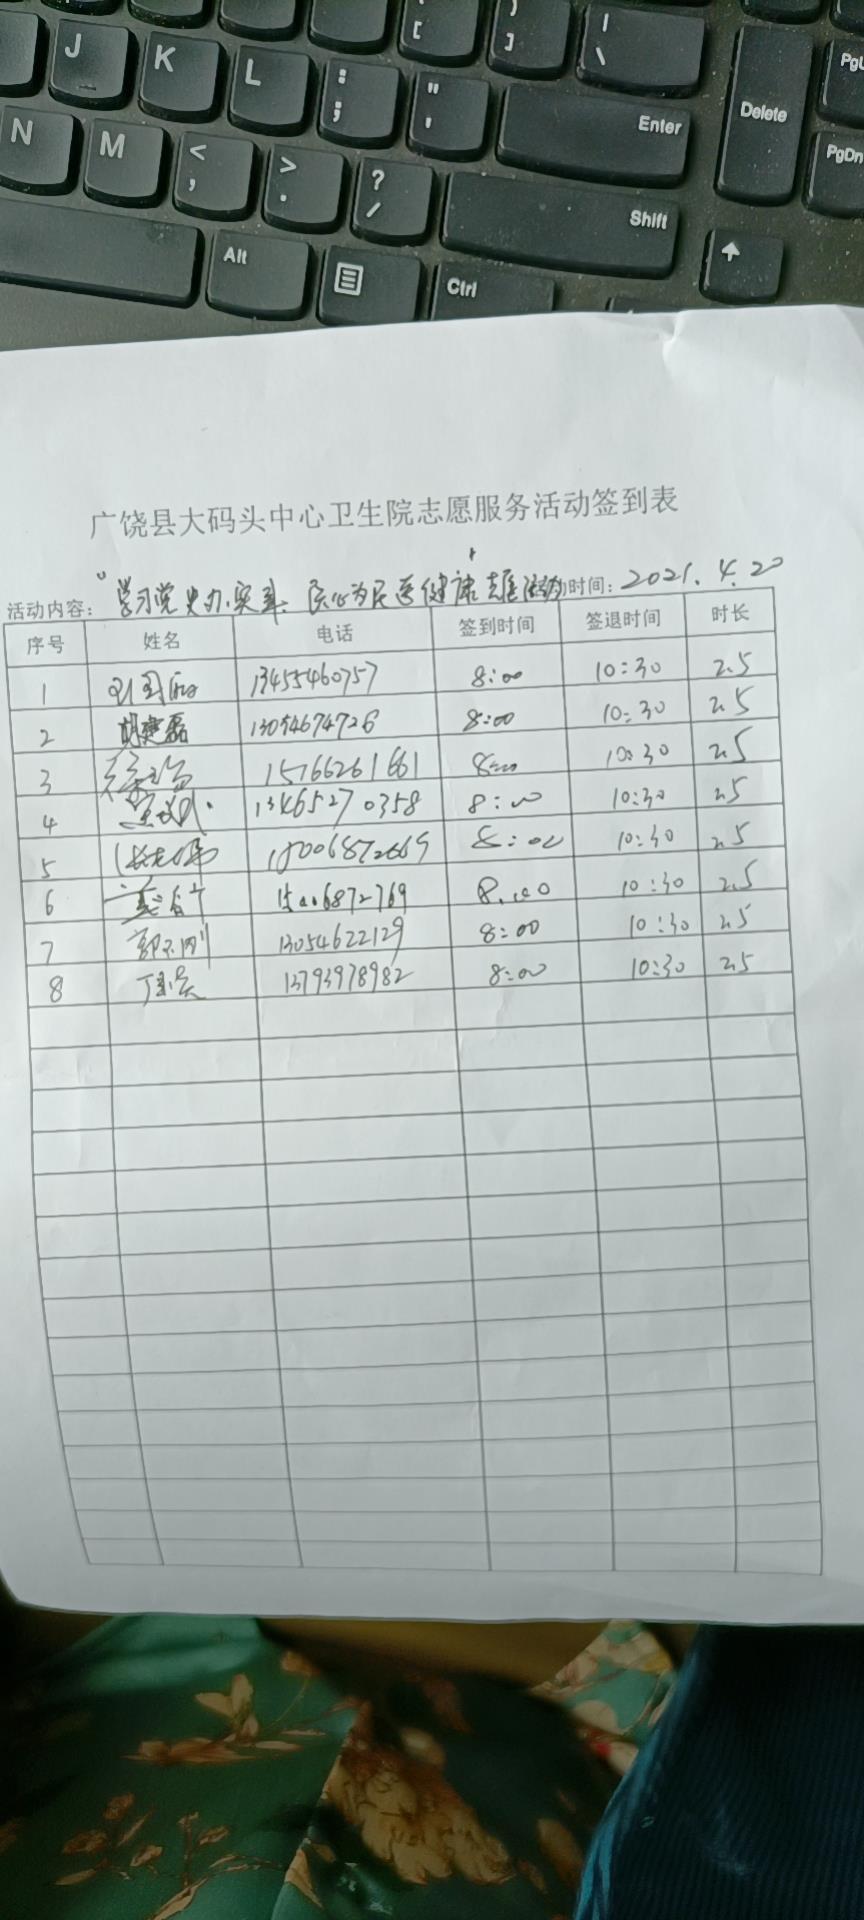 J K L : ; " ' [ ] | \ Enter Delete PgU
N M < , > . ? / Shift PgDn
Alt Ctrl
广饶县大码头中心卫生院志愿服务活动签到表
活动内容: "学习党史办实事、医心为民送健康" 活动时间: 2021.4.20
序号 姓名 电话 签到时间 签退时间 时长
1 13455460757 8:00 10:30 2.5
2 胡建磊 13054674726 8:00 10:30 2.5
3 15766261661 8:00 10:30 2.5
4 13465270358 8:00 10:30 2.5
5 8:00 10:30 2.5
6 15006872769 8:00 10:30 2.5
7 13054622129 8:00 10:30 2.5
8 13793978982 8:00 10:30 2.5